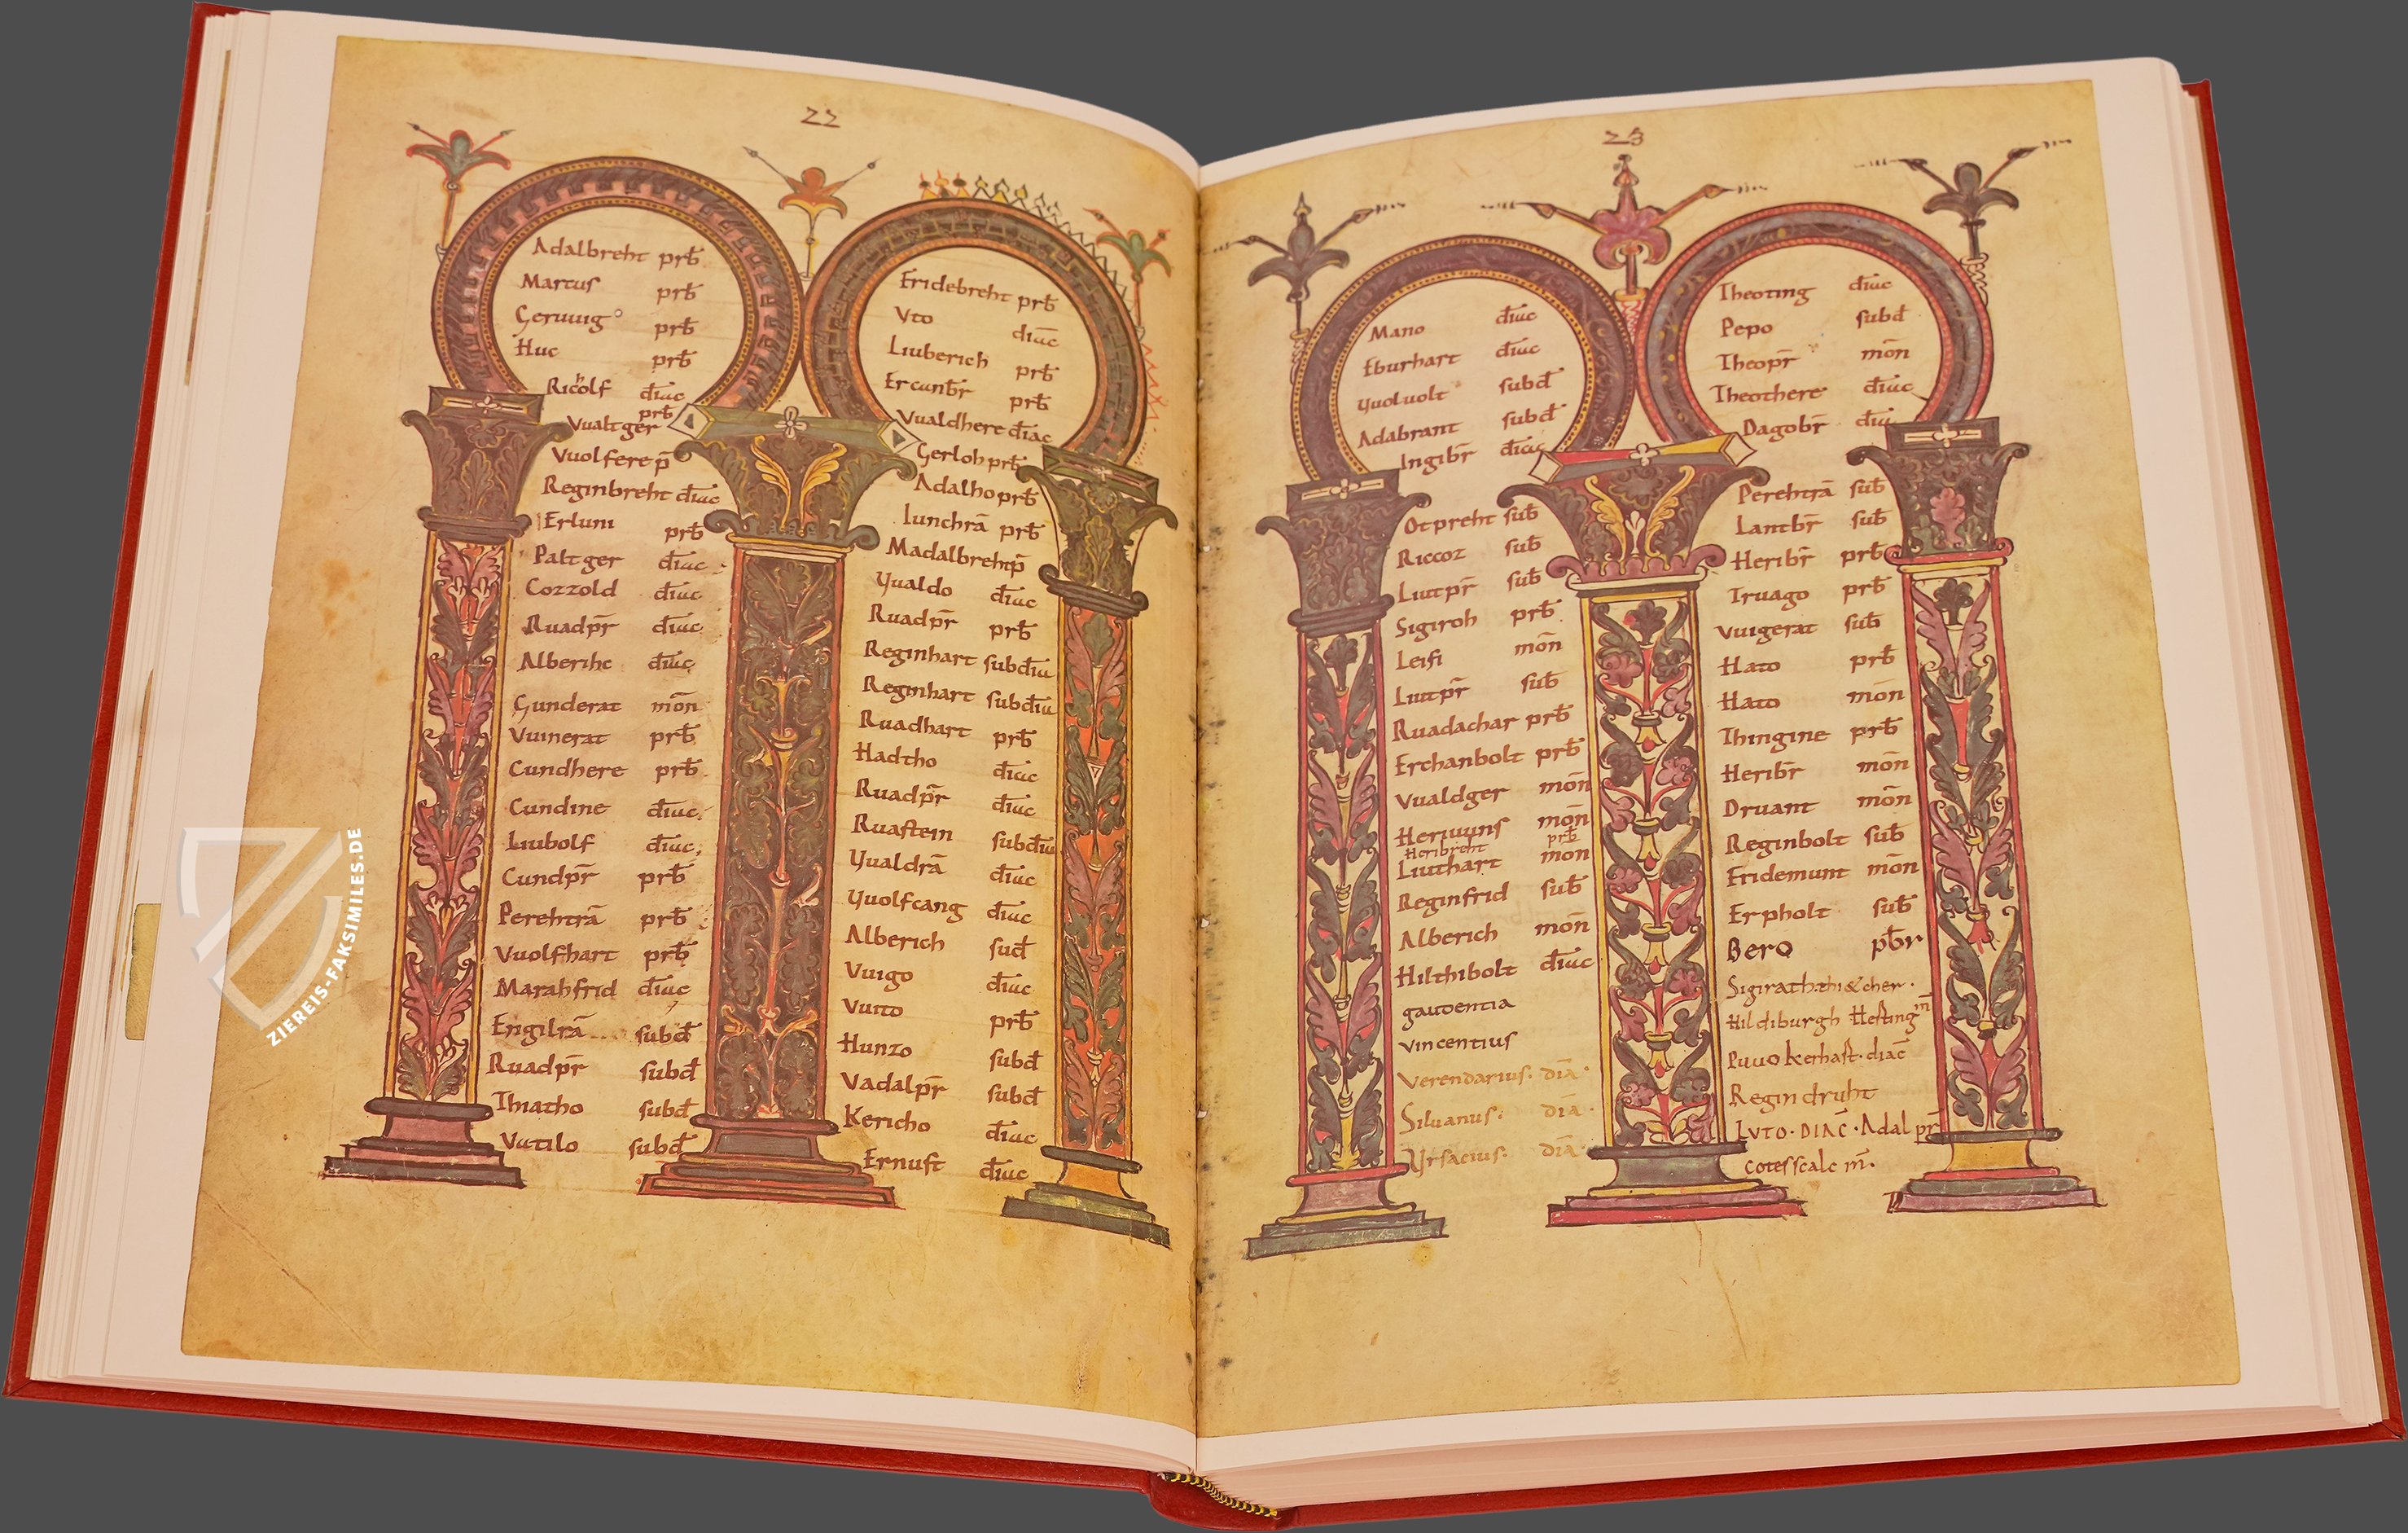 22
Adalbreht prƀ
Marcus prƀ
Geruuig prƀ
Huc prƀ
Ricolf diac
Vualtger prƀ
Vuolfere p̄
Reginbreht diac
Erluni prƀ
Paltger diac
Cozzold diac
Ruadpr̄ diac
Alberihc diac
Gunderat mōn
Vuinerat prƀ
Cundhere prƀ
Cundine diac
Liubolf diac
Cundpr̄ prƀ
Perehtrā prƀ
Vuolfhart prƀ
Marahfrid diac
Engilrā subđ
Ruadpr̄ subđ
Thiatho subđ
Vutilo subđ
Fridebreht prƀ
Vto diac
Liuberich prƀ
Ercunbr̄ prƀ
Vualdhere diac
Gerloh prƀ
Adalho prƀ
Iunchrā prƀ
Madalbreht p̄
Vualdo diac
Ruadpr̄ prƀ
Reginhart subdiac
Reginhart subdiac
Ruadhart prƀ
Hadtho diac
Ruadpr̄ diac
Ruastein subdiac
Vualdrā diac
Vuolfcang diac
Alberich suđ
Vuigo diac
Vuito prƀ
Hunzo subđ
Vadalpr̄ subđ
Kericho diac
Ernust diac
23
Mano diac
Eburhart diac
Vuoluolt subđ
Adabrant subđ
Ingibr̄ diac
Otpreht suƀ
Riccoz suƀ
Liutpr̄ suƀ
Sigiroh prƀ
Leifi mōn
Liutpr̄ suƀ
Ruadachar prƀ
Erchanbolt prƀ
Vualdger mōn
Heriuuns mōn
Heribreht prƀ
Liuthart mōn
Reginfrid suƀ
Alberich mōn
Hilthibolt diac
gaudentia
vincentius
Verendarius. diā.
Siluanus. diā.
Vrsacius. diā.
Theoting diac
Pepo subđ
Theopr̄ mōn
Theothere diac
Dagobr̄ diac
Perehtrā suƀ
Lantbr̄ suƀ
Heribr̄ prƀ
Truago prƀ
Vuigerat suƀ
Hato prƀ
Hato mōn
Thingine prƀ
Heribr̄ mōn
Druant mōn
Reginbolt suƀ
Fridemunt mōn
Erpholt suƀ
Bero pƀr
Hildiburgh
Puuo diac
Regindruht
LVTO · DIAC · Adalpr̄
Cotesscalc m̄.
ZIEREIS-FAKSIMILES.DE